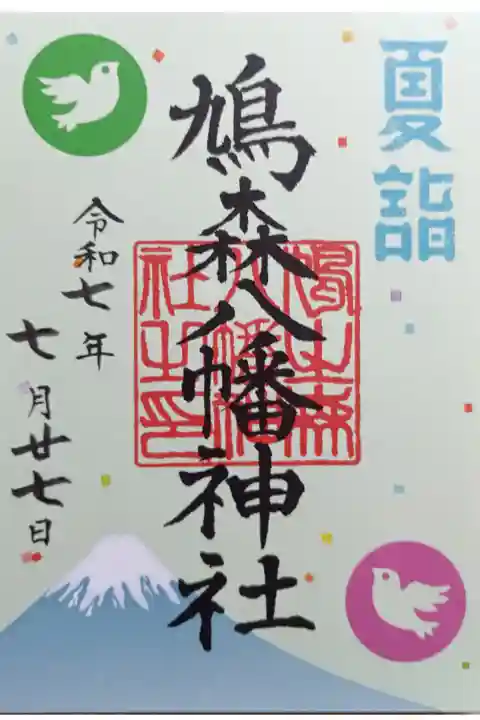 夏詣
鳩森八幡神社
鳩之森八幡神社之印
令和七年
七月廿七日